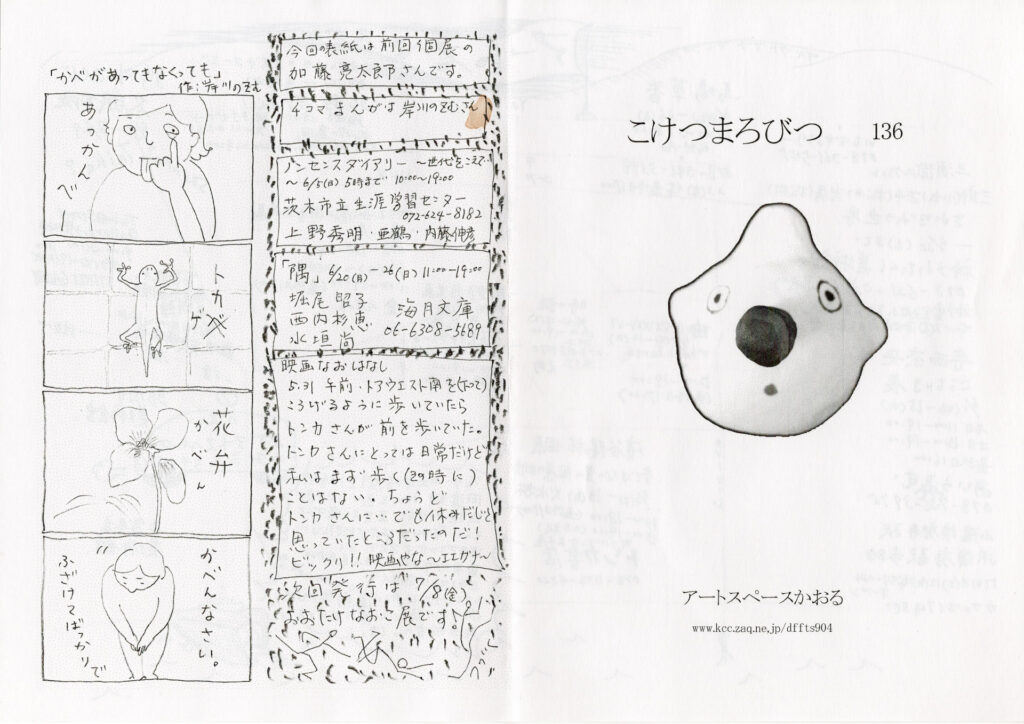 「かべがあってもなくっても」
作:岸川のぞむ
あっかんべ
トカゲ
花弁
かべん
かべんなさい。
ふざけてばっかりで
今回の表紙は前回個展の
加藤亮太郎さんです。
4コマまんがは岸川のぞむさん
ノンセンスダイアリー 〜世代をこえて〜
〜6/5(日)5時まで 10:00〜19:00
茨木市立生涯学習センター
072-624-8182
上野秀明・亜鶴・内藤伸彦
「隅」6/20(月)-26(日)11:00-19:00
堀尾昭子
西内杉恵
水垣尚
海月文庫
06-6308-5689
映画なおはなし
5.31 午前・トアウエスト南を(下って)
ころげるように歩いていたら
トンカさんが前を歩いていた。
トンカさんにとっては日常だけど
私はまず歩く(その時に)
ことはない。ちょうど
トンカさんに…でも休みだしと
思っていたところだったのだ!
ビックリ!!映画やな〜エエガナ〜
次回発行は7/8(金)
おおたけなおこ展です。
こけつまろびつ 136
アートスペースかおる
www.kcc.zaq.ne.jp/dffts904